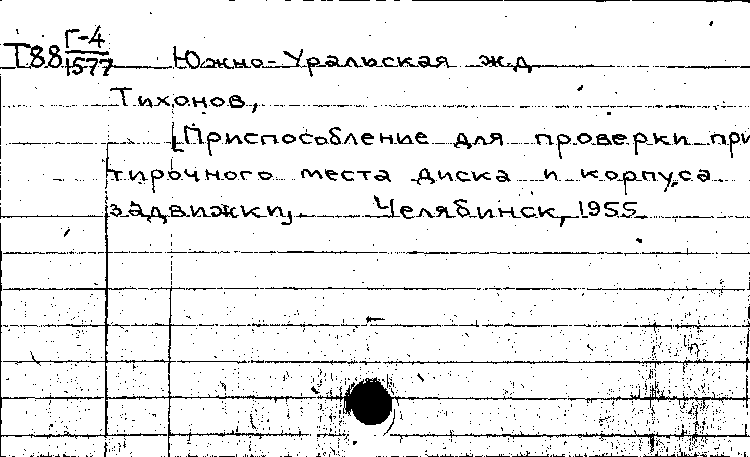 Т88 Г-4/1577 Южно-Уральская ж.д
Тихонов,
[Приспособление для проверки при
тирочного места диска и корпуса
задвижки]. Челябинск, 1955